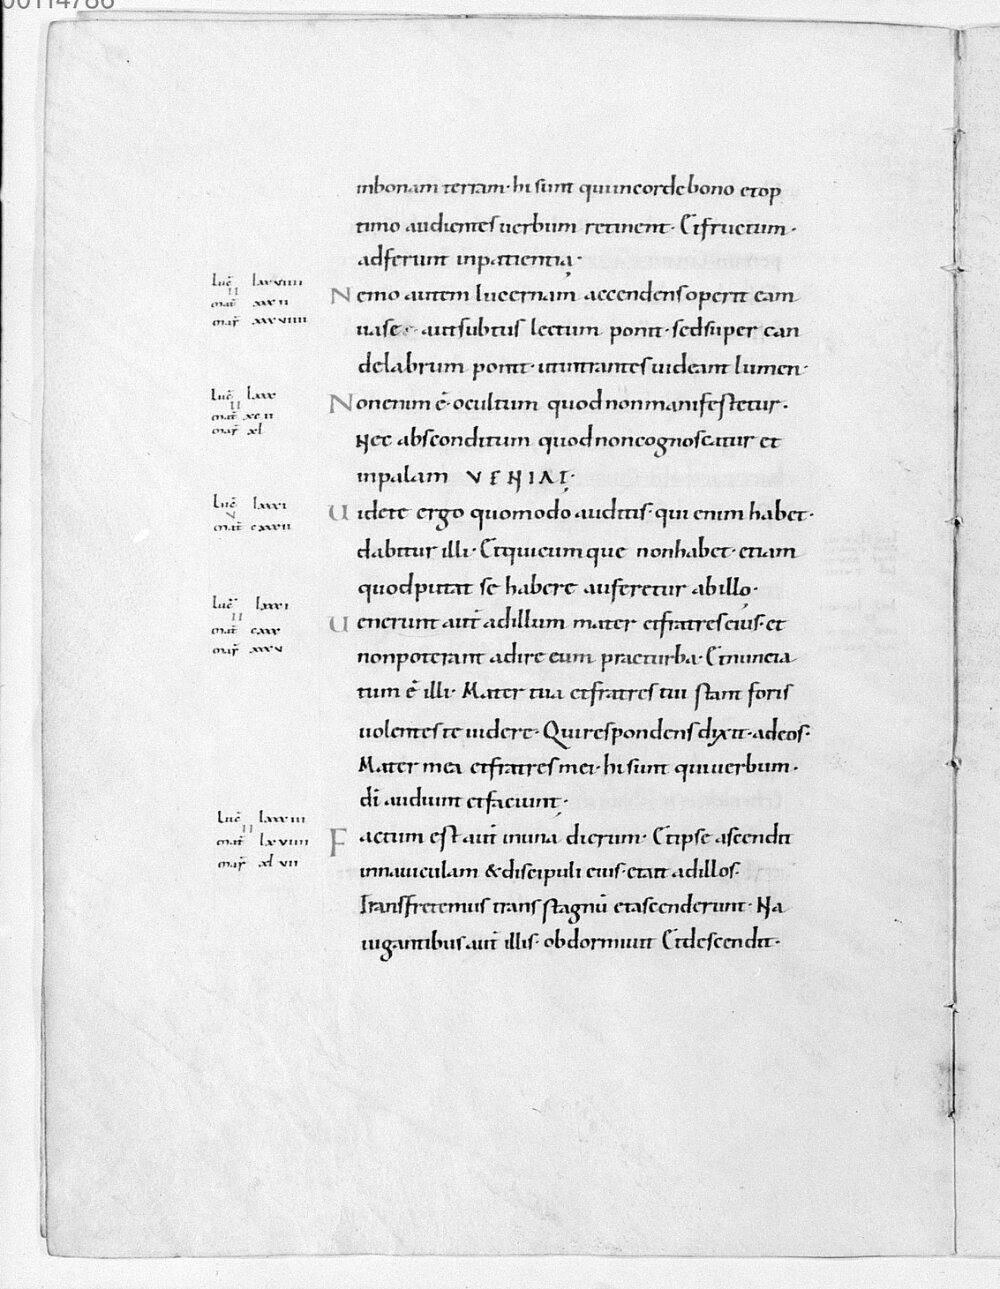 00114786
inbonam terram · hi sunt quiincordebono etop
timo audientesuerbum retinent · Etfructum ·
adferunt inpatientia ·
Luc̄ lxxviiii
II
mat̄ xxxii
mar̄ xxxviiii
Nemo autem lucernam accendensoperit eam
uase · autsubtus lectum ponit · sedsuper can
delabrum ponit · utintrantesuideant lumen ·
Luc̄ lxxx
II
mat̄ xcii
mar̄ xl
Nonenim ē · ocultum quodnonmanifestetur ·
Nec absconditum quodnoncognoscatur et
inpalam VENIAT ·
Luc̄ lxxxi
V
mat̄ cxxvii
Uidete ergo quomodo auditis · qui enim habet ·
dabitur illi · Etquicumque nonhabet · etiam
quodputat se habere auferetur abillo ·
Luc̄ lxxxi
II
mat̄ cxxx
mar̄ xxxv
Uenerunt aut̄ adillum mater etfratreseius · et
nonpoterant adire eum praeturba · Etnuncia
tum ē illi · Mater tua etfratres tui stant foris
uolenteste uidere · Quirespondens dixit · adeos ·
Mater mea etfratresmei · hisunt quiuerbum ·
dī audiunt etfaciunt ·
Luc̄ lxxxiii
II
mat̄ lxviiii
mar̄ xlvii
Factum est aut̄ inuna dierum · Etipse ascendit
innauiculam &discipuli eius · etait adillos ·
Transfretemus trans stagnū etascenderunt · Na
uigantibus aut̄ illis · obdormiuit Etdescendit ·